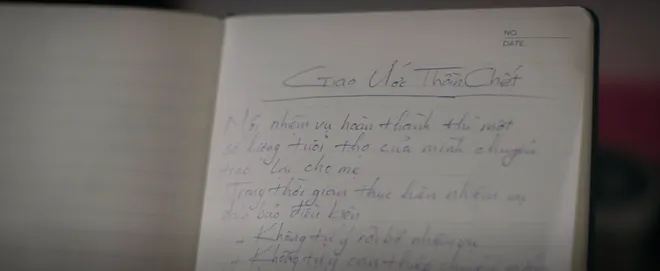 NO.
DATE.
Giao Ước Thần Chết
Mỗi nhiệm vụ hoàn thành thì một
số lượng tuổi thọ của mình chuyển
trao lại cho mẹ
Trong thời gian thực hiện nhiệm vụ
đảm bảo điều kiện
- Không tự ý rời bỏ nhiệm vụ
- Không tự ý can thiệp